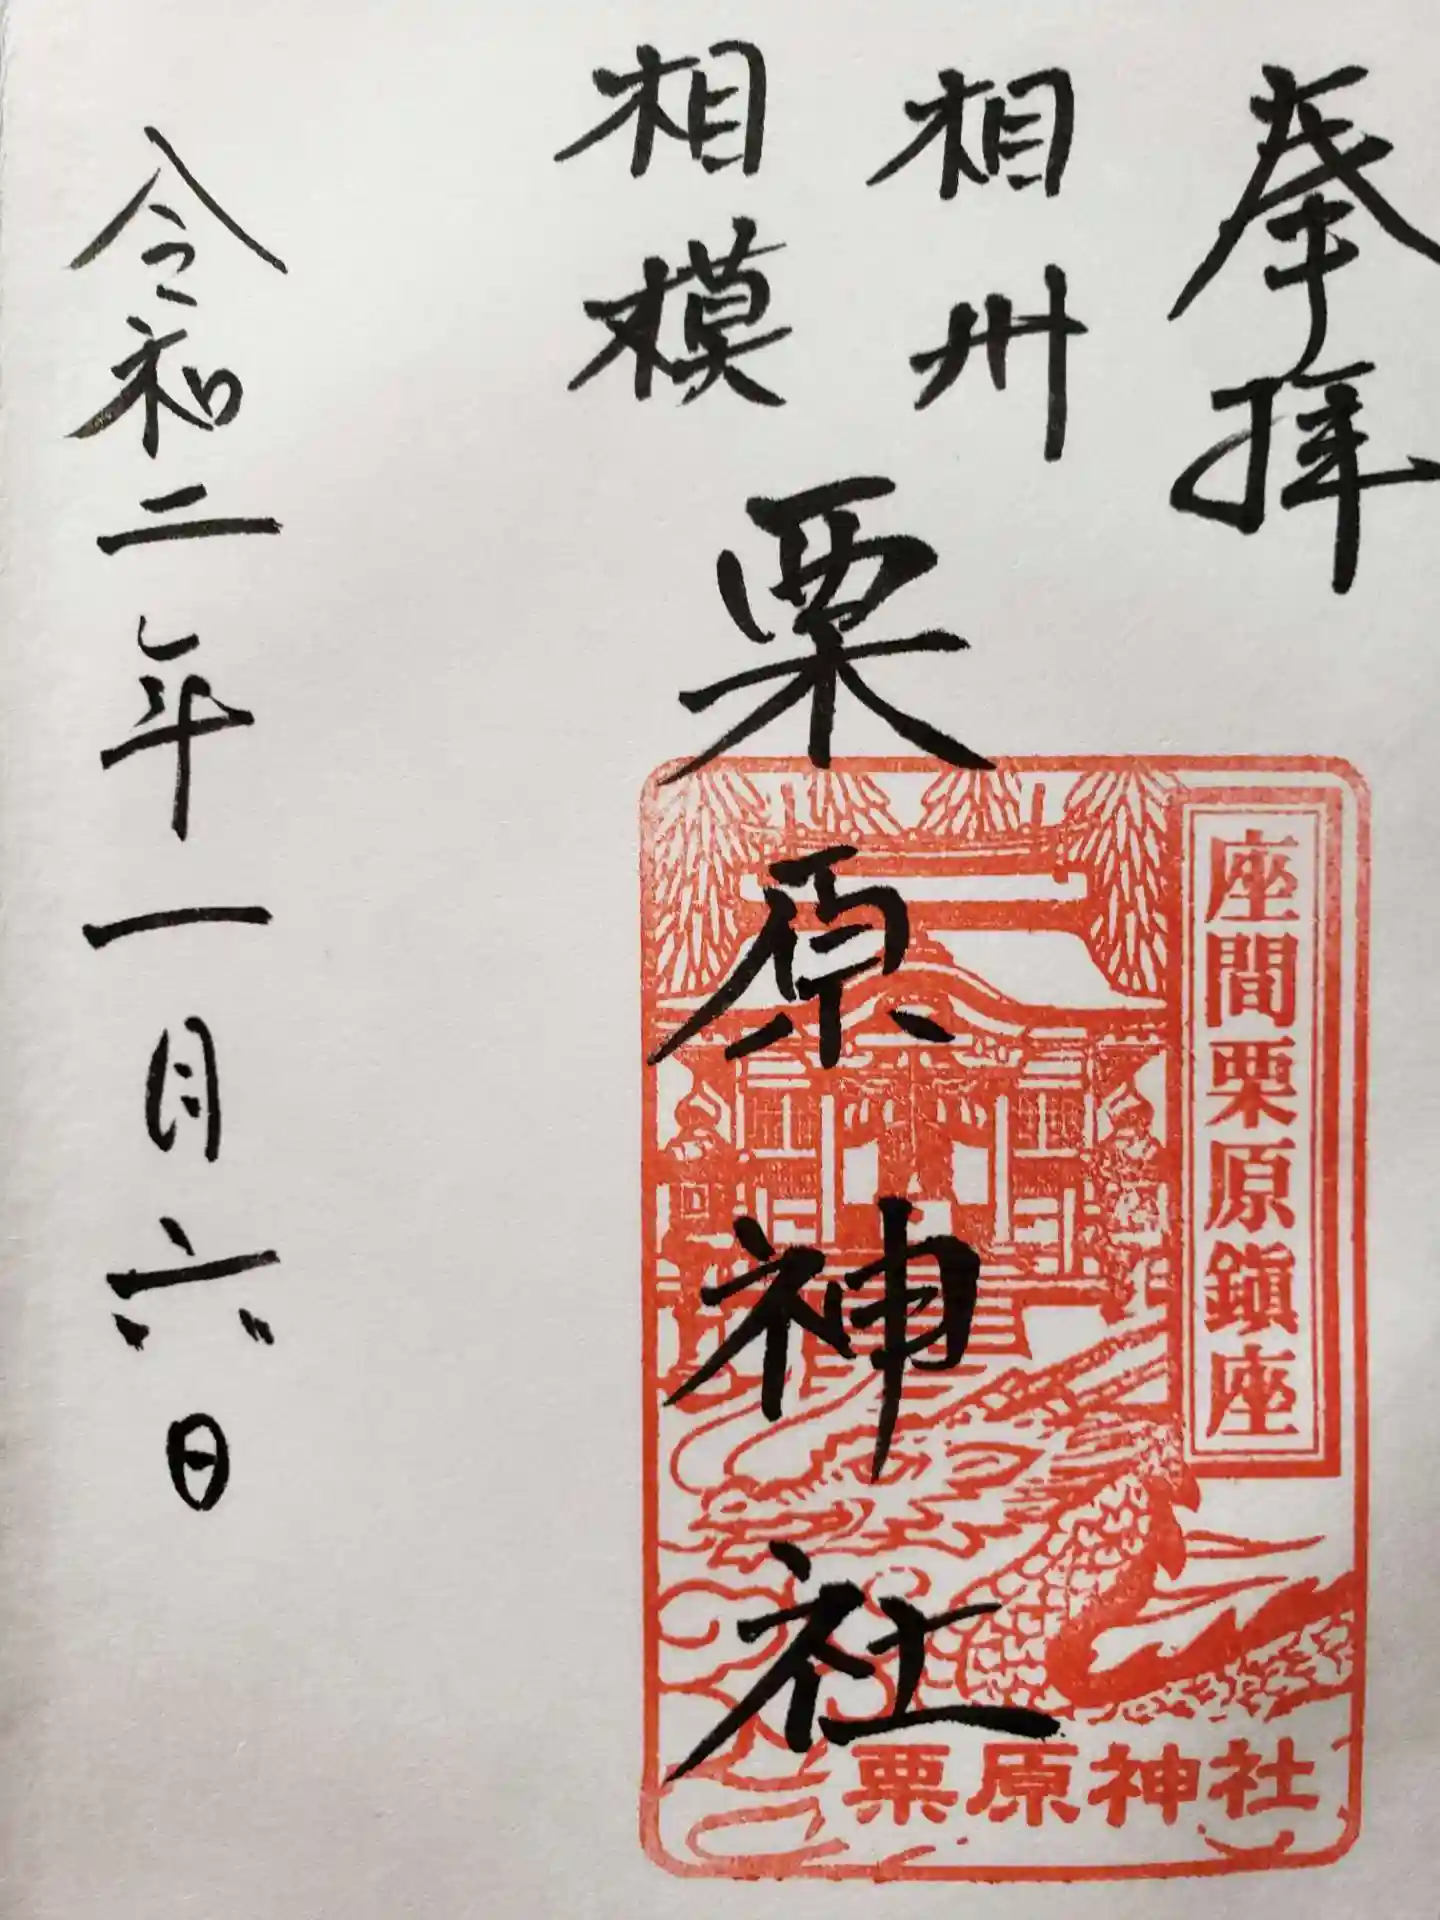 奉拝
相州
相模
栗原神社
座間栗原鎭座
栗原神社
令和二年一月六日